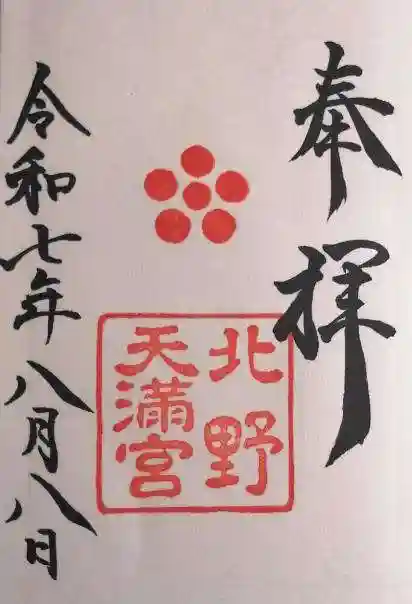 奉拝
北野
天満宮
令和七年八月八日